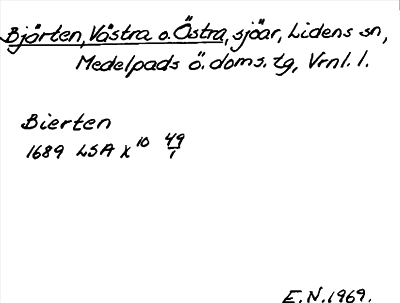 Bjärten, Västra o. Östra, sjöar, Lidens sn,
Medelpads ö. doms. tg, Vrnl. l.
Bierten
1689 LSA X 10 49/1
E.N. 1969.